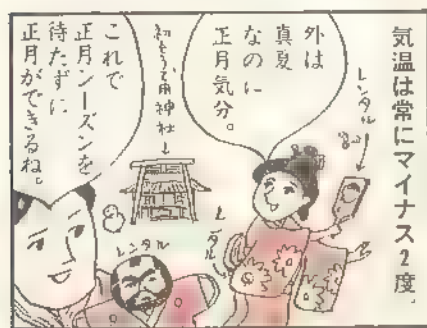 気温は常にマイナス2度。
レンタル
外は
真夏
なのに
正月気分。
初もうで用神社
これで
正月シーズンを
待たずに
正月ができるね。
レンタル
レンタル